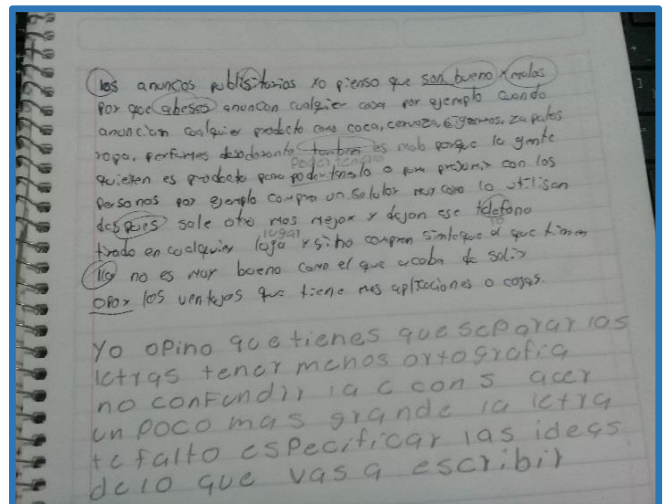 los anuncos publisitarios yo pienso que son bueno y malos
por que abeses anuncian cualqier cosa por ejemplo cuando
anuncian cualqier producto como coca, cerveza, sigarros, zapatos
ropa, perfumes desodorante tambien es malo porque la gente
poder tenerlo
quieren es producto para podertenelo o para presumir con los
personas por ejemplo compra un selular muy caro lo utilisan
despues sale otro mas mejor y dejan ese telefono
lugar
tirado en cualquier luga y si no compran sienteque el que tienen
ya no es muy bueno como el que acaba de salir
opor los ventajas que tiene mas aplicaciones o cosas.
Yo opino que tienes que separar las
letras tener menos ortografia
no confundir la c con s acer
un poco mas grande la letra
te falto especificar las ideas
de lo que vas a escribir